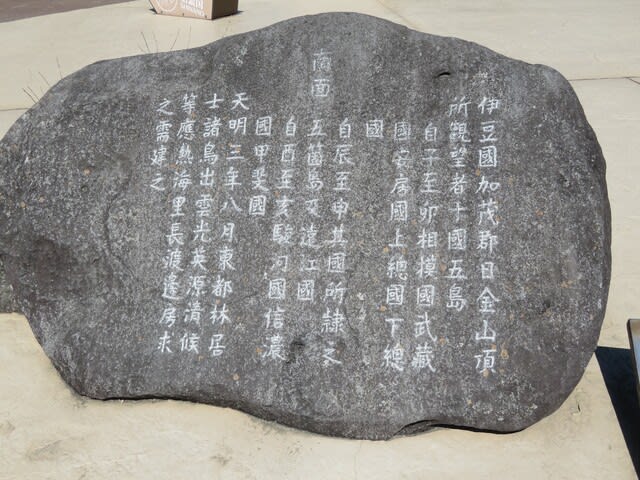 南面
伊豆國加茂郡日金山頂
所観望者十國五島
自子至卯相模國武藏
國安房國上總國下總
國
自辰至申其國所隷之
五箇島及遠江國
自酉至亥駿河國信濃
國甲斐國
天明三年八月東都林居
士諸鳥出雲光英源清候
等應熱海里長渡邊房求
之需建之